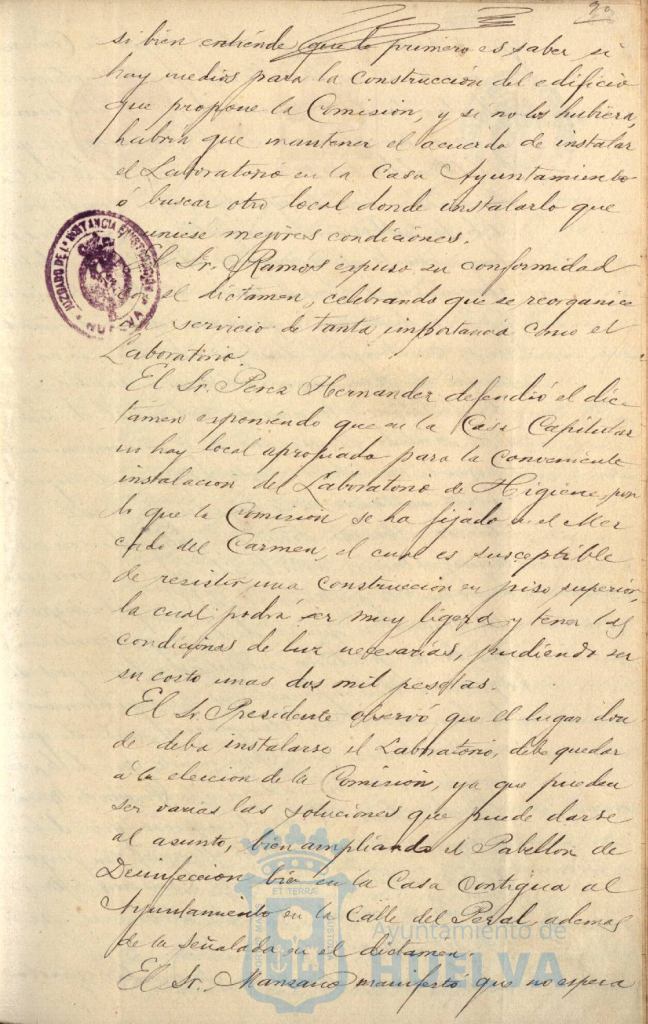 29
si bien entiende que lo primero es saber si
hay medios para la construcción del edificio
que propone la Comisión, y si no los hubiera,
habria que mantener el acuerdo de instalar
el Laboratorio en la Casa Ayuntamiento
ó buscar otro local donde instalarlo que
uniese mejores condiciones.
El Sr. Ramos expuso su conformidad
el dictamen, celebrando que se reorganice
servicio de tanta importancia como el
Laboratorio.
El Sr. Perez Hernandez defendió el dic-
tamen exponiendo que en la Casa Capitular
no hay local apropiado para la conveniente
instalacion del Laboratorio de Higiene, por
lo que la Comisión se ha fijado en el Mer
cado del Carmen, el cual es susceptible
de resistir una construcción en piso superior,
la cual podrá ser muy ligera y tener las
condiciones de luz necesarias, pudiendo ser
su costo unas dos mil pesetas.
El Sr. Presidente observó que el lugar don
de deba instalarse el Laboratorio, debe quedar
á la eleccion de la Comisión, ya que pueden
ser varias las soluciones que puede darse
al asunto, bien ampliando el Pabellon de
Desinfeccion bien en la Casa contigua al
Ayuntamiento en la Calle del Peral, ademas
de la señalada en el dictamen.
El Sr. Manzano manifestó que no espera
JUZGADO DE 1ª INSTANCIA E INSTRUCCIÓN
HUELVA
Ayuntamiento de
HUELVA